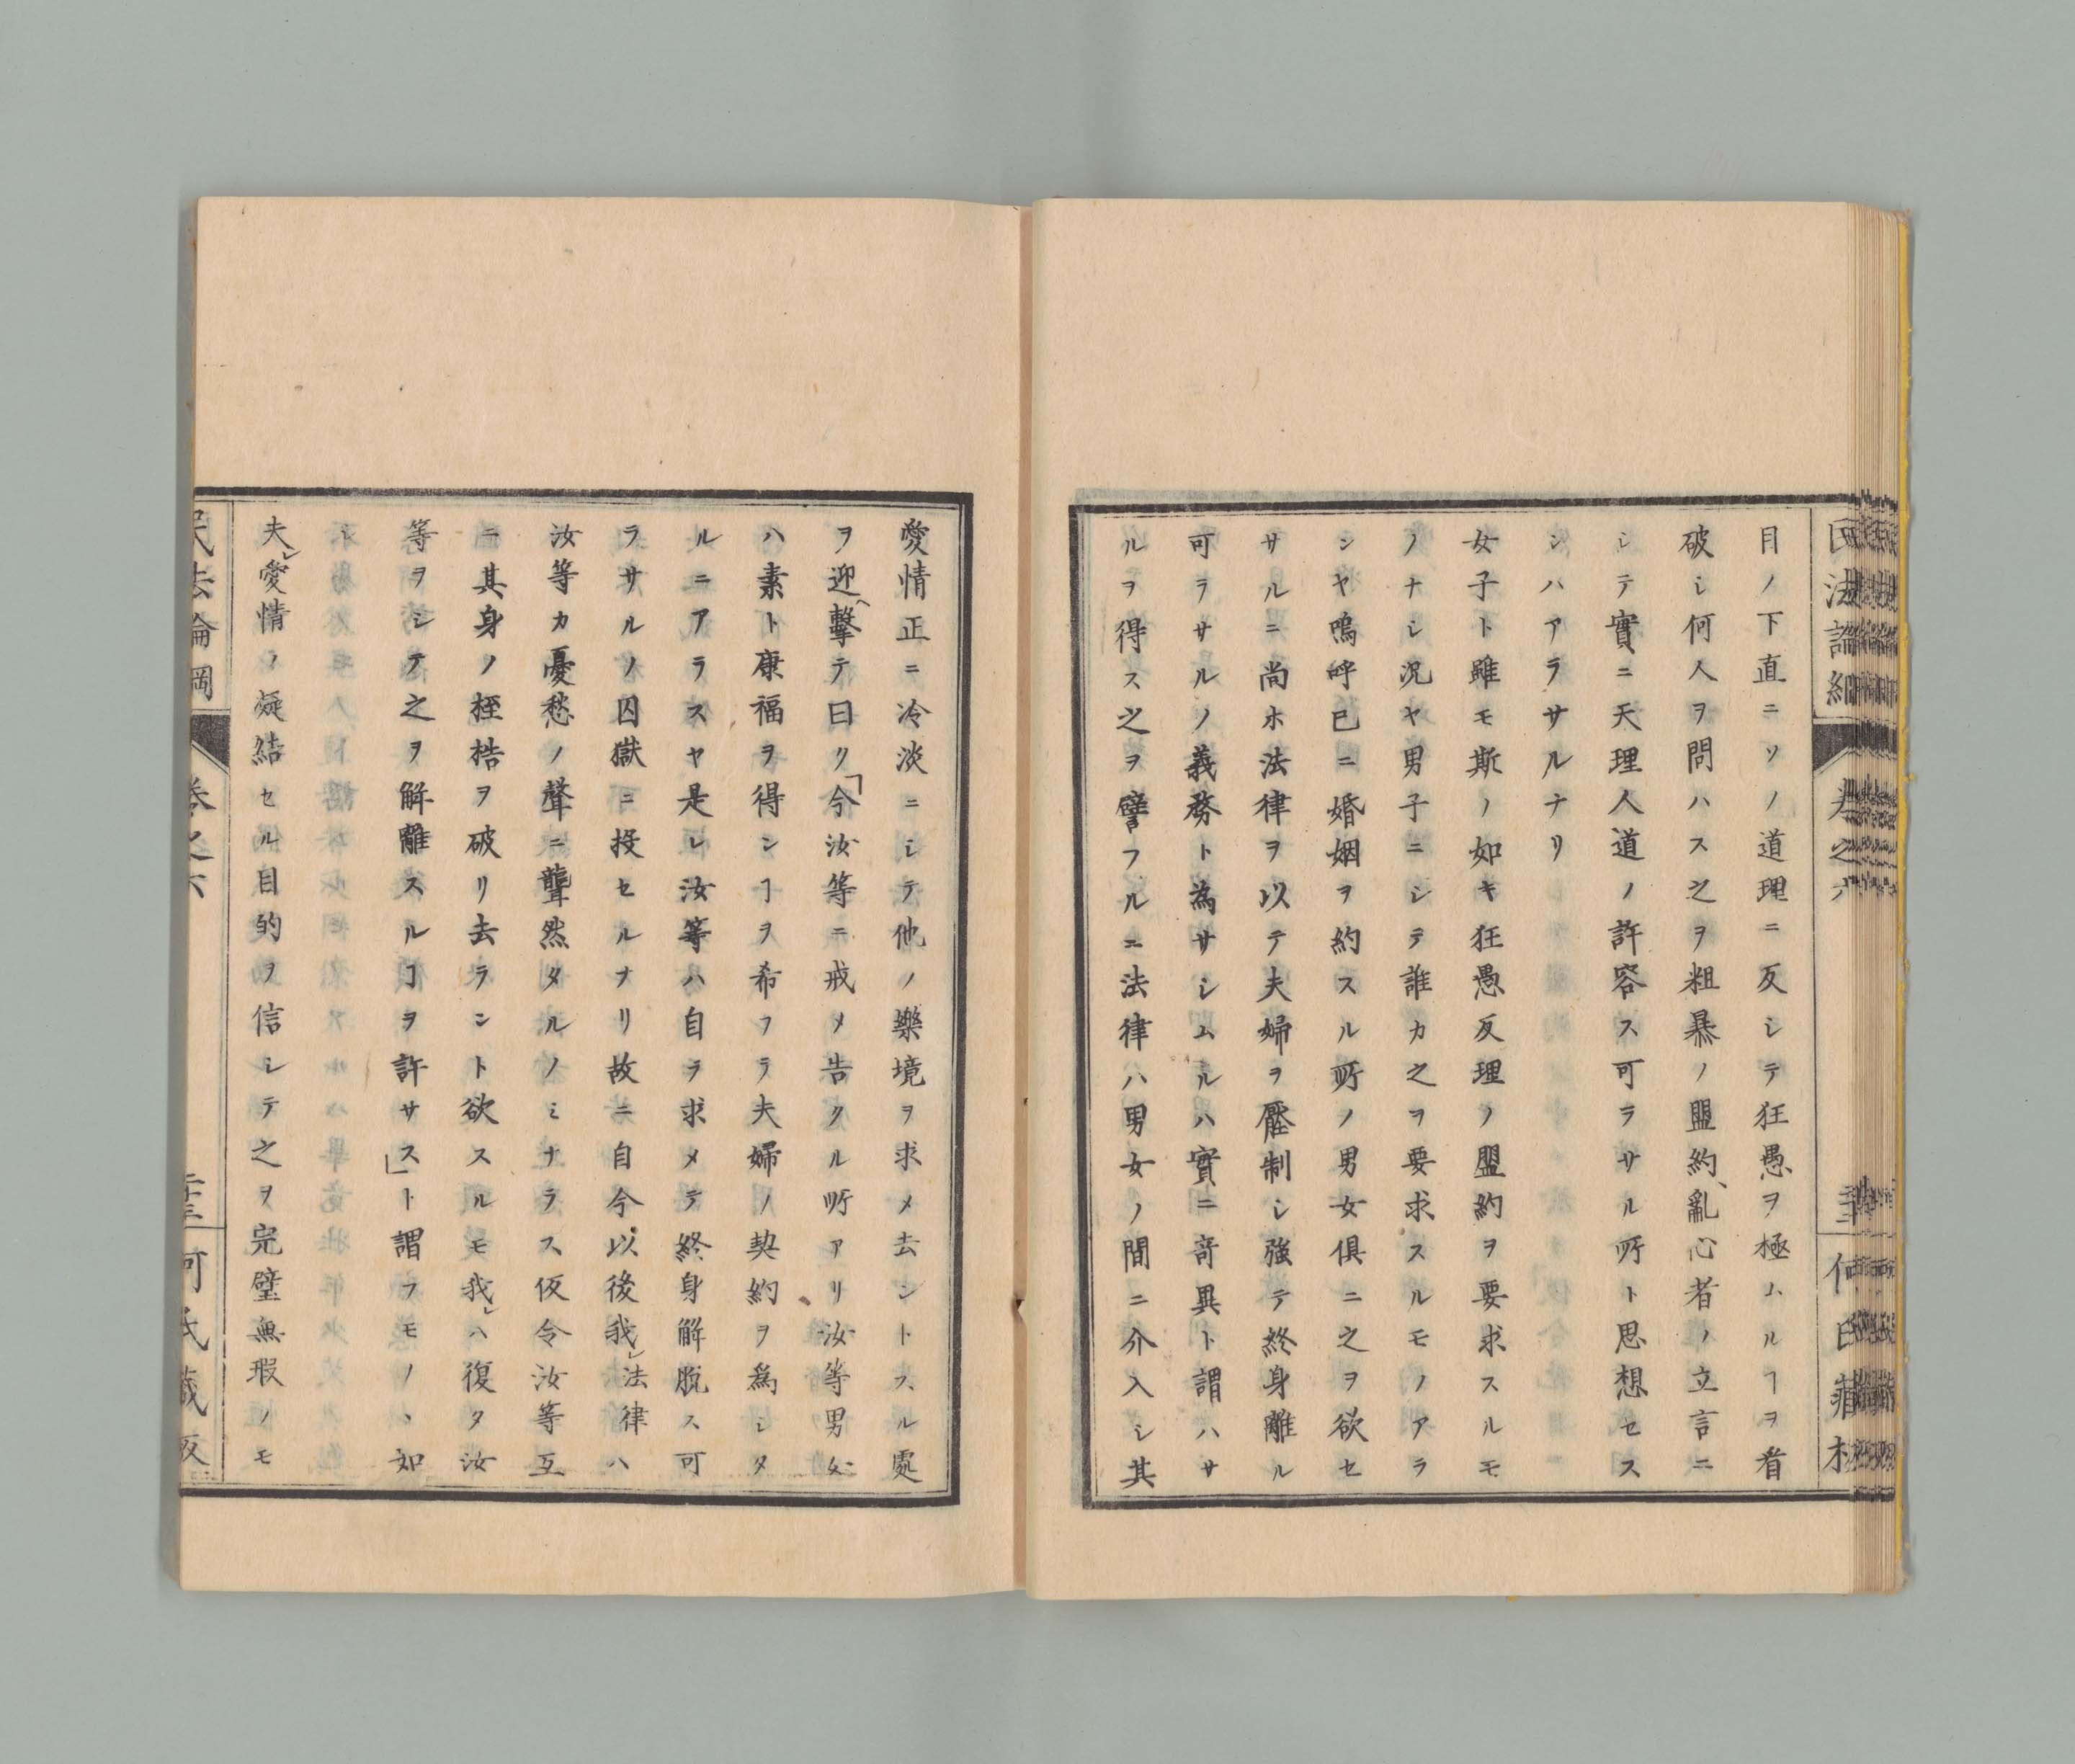 民法論綱
卷之六
目ノ下直ニソノ道理ニ反シテ狂愚ヲ極ムルヿヲ看
破シ何人ヲ問ハス之ヲ粗暴ノ盟約、亂心者ノ立言ニ
シテ實ニ天理人道ノ許容ス可ラサル所ト思想セス
シハアラサルナリ
女子ト雖モ斯ノ如キ狂愚反理ノ盟約ヲ要求スルモ
ノナシ况ヤ男子ニシテ誰カ之ヲ要求スルモノアラ
シヤ嗚呼已ニ婚姻ヲ約スル所ノ男女倶ニ之ヲ欲セ
サルニ尚ホ法律ヲ以テ夫婦ヲ壓制シ強テ終身離ル
可ラサルノ義務ト為サシムルハ實ニ竒異ト謂ハサ
ルヲ得ス之ヲ譬フルニ法律ハ男女ノ間ニ介入シ其
愛情正ニ冷淡ニシテ他ノ樂境ヲ求メ去ントスル處
ヲ迎ヘ擊テ曰ク「今汝等ニ戒メ告クル所アリ汝等男女
ハ素ト康福ヲ得ンヿヲ希フテ夫婦ノ契約ヲ爲シタ
ルニアラスヤ是レ汝等ハ自ラ求メテ終身解脫ス可
ラサルノ囚獄ニ投セルナリ故ニ自今以後我レ法律ハ
汝等カ憂愁ノ聲ニ聾然タルノミナラス仮令汝等互
ニ其身ノ桎梏ヲ破リ去ラント欲スルモ我レハ復タ汝
等ヲシテ之ヲ解離スルヿヲ許サス」ト謂フモノヽ如
シ
夫レ愛情ノ凝結セル目的ヲ信シテ之ヲ完璧無瑕ノモ
民法論綱
卷之六
何氏藏版